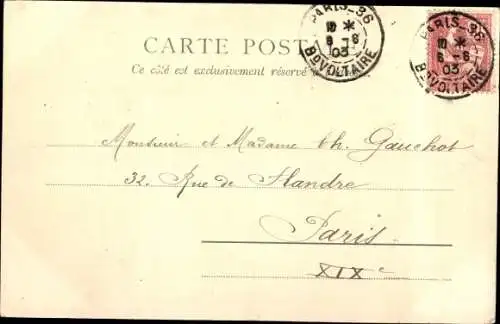 CARTE POSTALE
Ce côté est exclusivement réservé à
PARIS_36
10 *
6 - 8
03
Bd VOLTAIRE
PARIS_36
10 *
6 - 8
03
Bd VOLTAIRE
Monsieur et Madame Ch. Gauchot
32, Rue de Flandre
Paris
XIXe